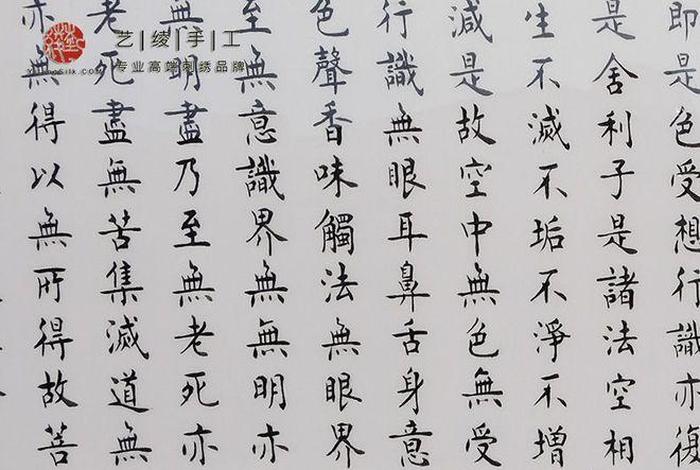 即是色受想行識亦復
是舍利子是諸法空相
生不滅不垢不淨不增
減是故空中無色無受
行識無眼耳鼻舌身意
色聲香味觸法無眼界
至無意識界無無明亦
無明盡乃至無老死亦
老死盡無苦集滅道無
亦無得以無所得故菩
艺|绫|手|工
专业高端刺绣品牌